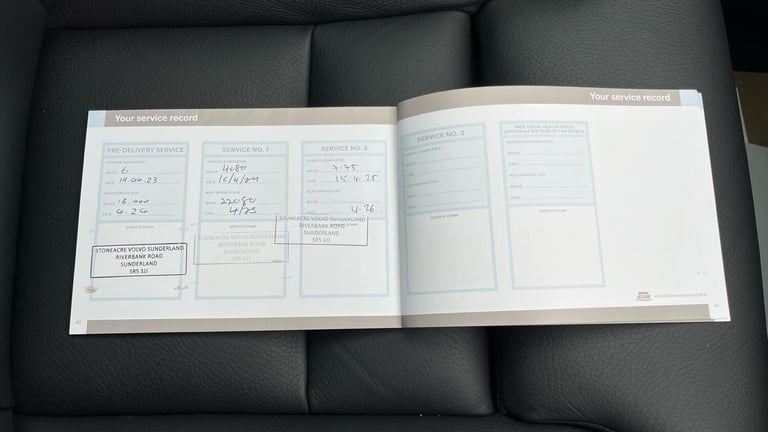 Your service record
PRE-DELIVERY SERVICE
SERVICE COMPLETED
MILES 6
DATE 14.04.23
NEXT SERVICE DUE
MILES 18.000
DATE 4.24
STONEACRE VOLVO SUNDERLAND
RIVERBANK ROAD
SUNDERLAND
SR5 3JJ
SERVICE NO. 1
SERVICE COMPLETED
MILES 4080
DATE 10/4/24
NEXT SERVICE DUE
MILES 22080
DATE 4/25
SERVICE STAMP
STONEACRE VOLVO SUNDERLAND
RIVERBANK ROAD
SUNDERLAND
SR5 3JJ
SERVICE NO. 2
SERVICE COMPLETED
MILES 7775
DATE 15.4.25
NEXT SERVICE DUE
MILES
DATE 4.26
STONEACRE VOLVO SUNDERLAND
RIVERBANK ROAD
SUNDERLAND
SR5 3JJ
40
Your service record
SERVICE NO. 3
SERVICE COMPLETED
MILES
DATE
NEXT SERVICE DUE
MILES
DATE
SERVICE STAMP
FREE VISUAL HEALTH CHECK
INSPECTION COMPLETED
MILES
DATE
NEXT SERVICE DUE
MILES
DATE
SERVICE STAMP
41